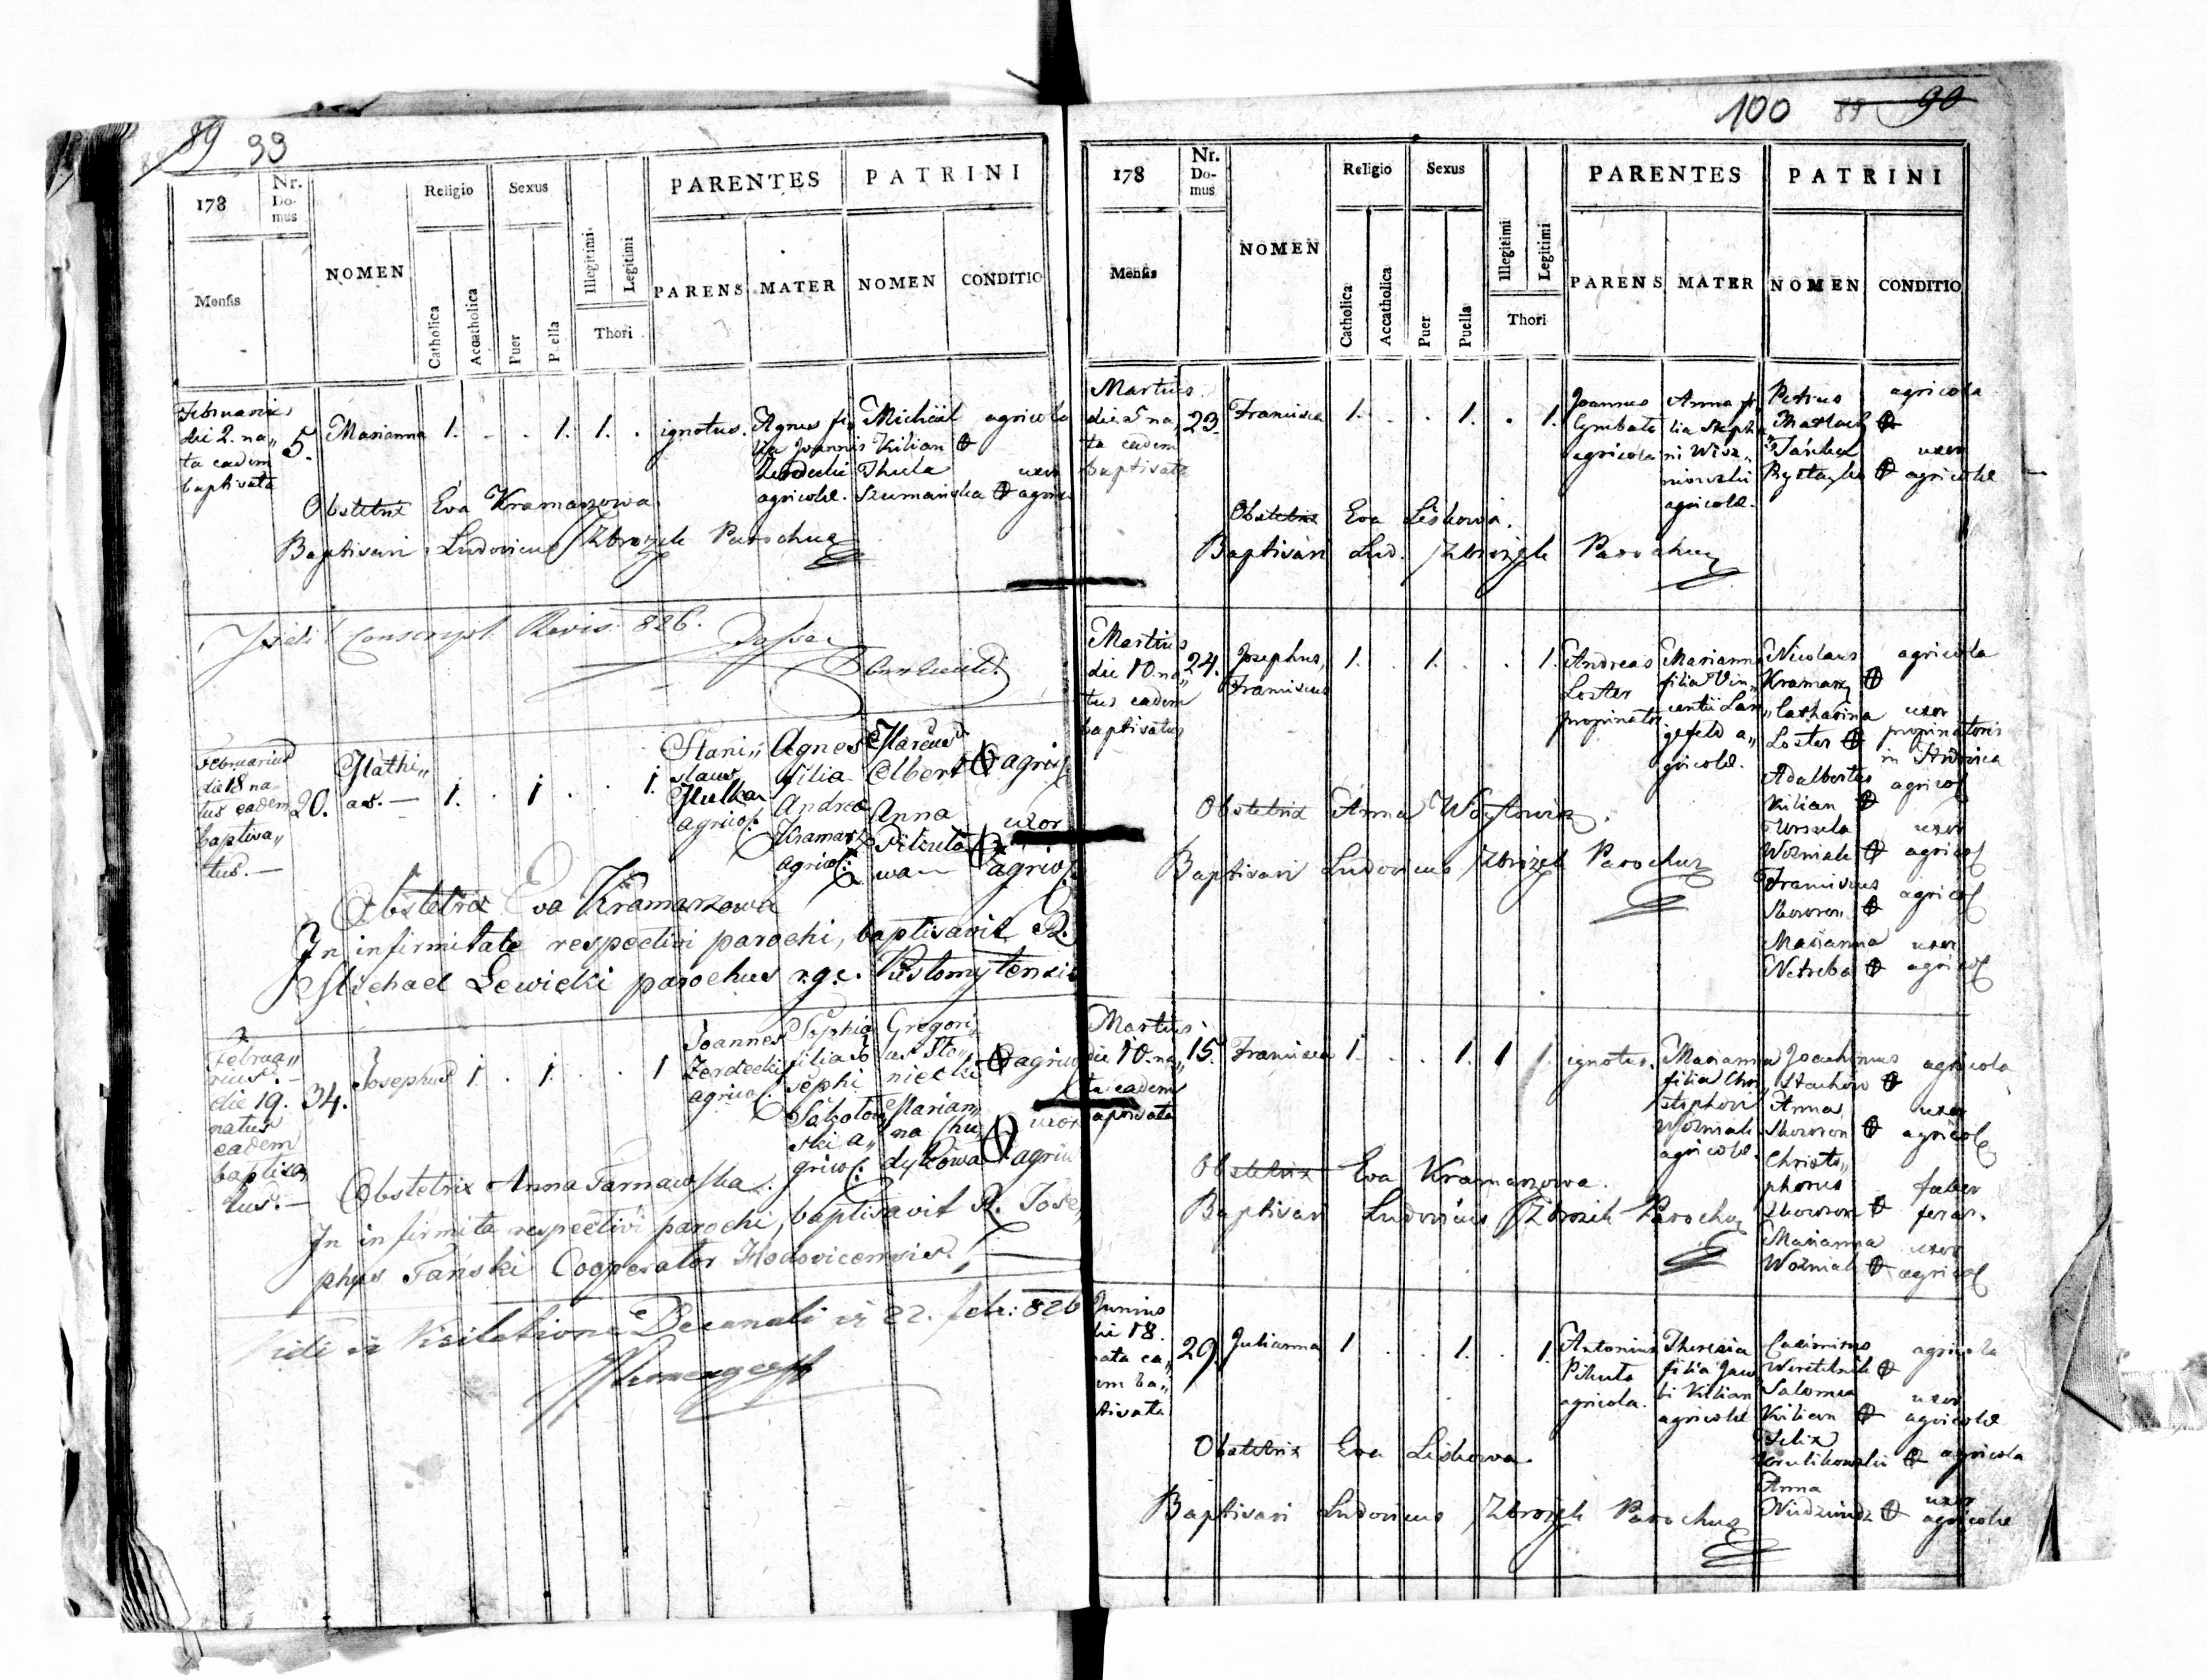 89 99
178
Nr. Do-
mus
NOMEN
Religio
Sexus
PARENTES
PATRINI
Mensis
Catholica
Acatholica
Puer
Puella
Illegitimi
Legitimi
Thori
PARENS
MATER
NOMEN
CONDITIO
Februarius
die 2. na„
ta eadem
baptisata
5.
Marianna
1. . . 1. 1. .
ignotus.
Agnes fi„
lia Joannis
agricolae.
Michäel
Kilian
Thecla
Szumańska
agricola
uxor
agrico
Obstetrix Eva Kramarzowa
Baptisavi Ludovicus Zbrożek Parochus
Vidi Conscript. Revis. 826.
Februarius
die 18 na„
tus eadem
baptisa„
tus.—
20.
Mathi„
as.—
1. . 1 . . 1.
Stani„
slaus
Hulka
agrico.
Agnes
filia
Andrea
Kramarz
agrico:
Marcus
Elbert
Anna
agrico
uxor
agrico
Obstetrix Eva Kramarzowa
In infirmitate respectivi parochi, baptisavit R.
Michael Lewicki parochus r.g.c. Pustomytensis
Februa„
rius.—
die 19.
natus
eadem
baptisa„
tus.—
34.
Josephus
1. . 1. . . 1
Joannes
Zerdecki
agrico.
Sophia
filia Jo
sephi
Sobotow
ski a„
grico:
Gregori„
us Sto„
niecki
Marian„
na Chu„
dykowa
agrico
uxor
agrico
Obstetrix Anna Tarnawska.
In infirmita respectivi parochi, baptisavit R. Jose„
phus Tański Cooperator Hodovicensis.
Vidi in Visitatione Decanali die 22. feb: 826
100 89 90
178
Nr.
Do-
mus
NOMEN
Religio
Sexus
PARENTES
PATRINI
Mensis
Catholica
Accatholica
Puer
Puella
Illegitimi
Legitimi
Thori
PARENS
MATER
NOMEN
CONDITIO
Martius
die 5 na„
ta eadem
baptisata
23.
Francisca
1. . . 1. . 1.
Joannes
Cymbala
agricola
Anna fi„
lia Stepha
ni Wisz„
niowski
agricolae.
Petrus
agricola
uxor
agricolae
Obstetrix Eva Liskowa.
Baptisavi Lud. Zbrożek Parochus
Martius
die 10. na„
tus eadem
baptisatus
24.
Josephus,
Franciscus
1. . 1. . . 1.
Andreas
Loster
propinator
Marianna
filia Vin„
centii Lan„
gefeld a„
gricolae.
Nicolaus
Kramarz
Catharina
Loster
Adalbertus
Kilian
Urszula
Wozniak
Franciscus
Skowron
Marianna
Netreba
agricola
uxor
propinatoris
agrico
uxor
agrico
agrico
uxor
agrico
Obstetrix Anna Woytowicz.
Baptisavi Ludovicus Zbrożek Parochus
Martius
die 10. na„
ta eadem
baptisata
15.
Francisca
1. . . 1. 1 1.
ignotus.
Marianna
filia Chri„
stophori
Wozniak
agricolae.
Joachimus
Stachow
Anna
Skowron
Christo„
phorus
Skowron
Marianna
Wozniak
agricola
uxor
agricolae
faber
ferar.
uxor
agrico
Obstetrix Eva Kramarzowa.
Baptisavi Ludovicus Zbrożek Parochus
Junius
die 18.
nata ea„
dem ba„
tisata
29.
Julianna
1 . . 1. . 1.
Antonius
Pikuta
agricola.
Theresia
filia Jaco
bi Kilian
agricolae
Casimirus
Weretelnik
Salomea
Kilian
Felix
Krulikowski
Anna
Niedzwiedz
agricola
uxor
agricolae
agricola
uxor
agricolae
Obstetrix Eva Liskowa
Baptisavi Ludovicus Zbrożek Parochus